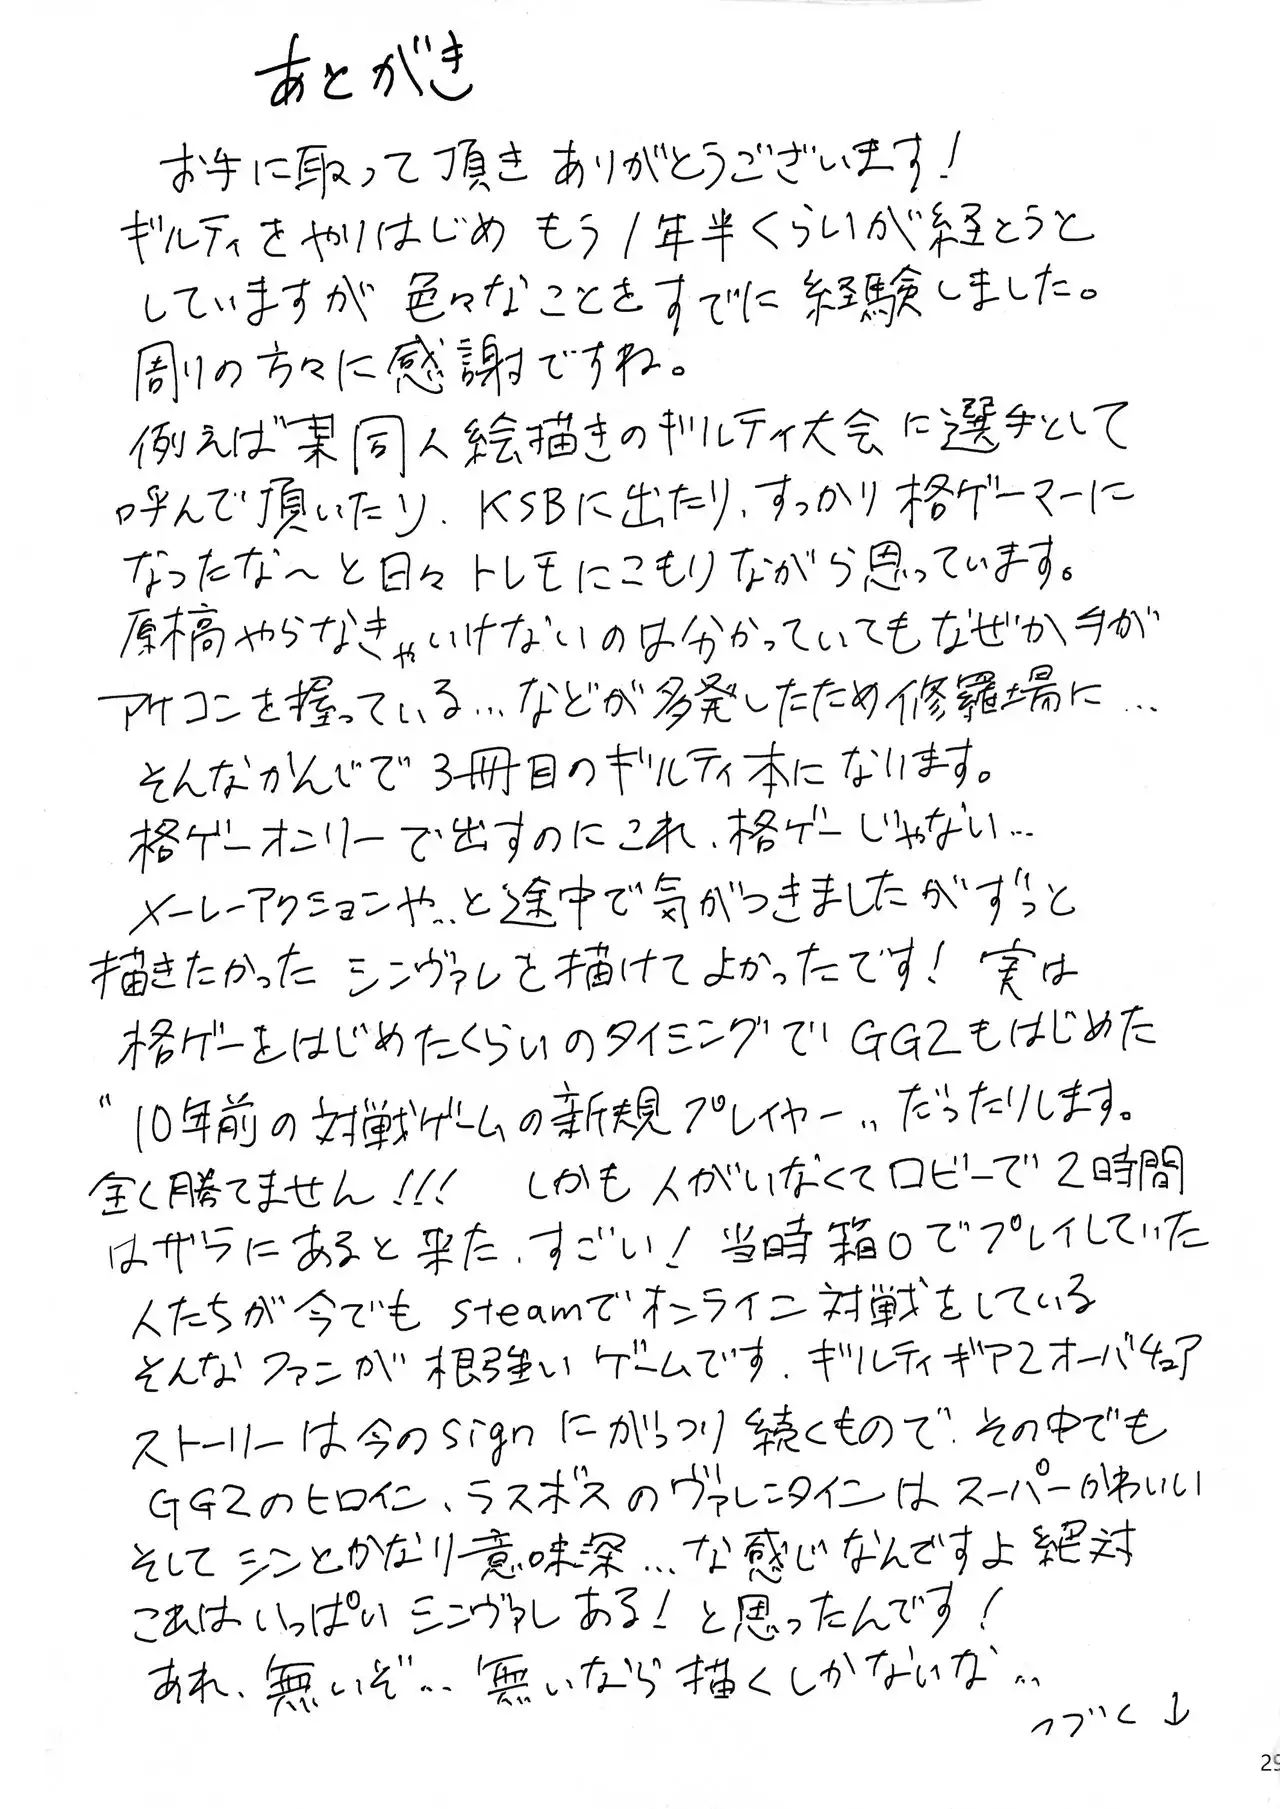 あとがき
お手に取って頂きありがとうございます!
ギルティをやりはじめ もう1年半くらいが経とうと
していますが 色々なことをすでに経験しました。
周りの方々に感謝ですね。
例えば某同人絵描きのギルティ大会に選手として
呼んで頂いたり、KSBに出たり、すっかり格ゲーマーに
なったな〜と日々トレモにこもりながら思っています。
原稿やらなきゃいけないのは分かっていてもなぜか手が
アケコンを握っている...などが多発したため修羅場に...
そんなかんじで3冊目のギルティ本になります。
格ゲーオンリーで出すのにこれ、格ゲーじゃない...
メーレーアクションや...と途中で気がつきましたがずっと
描きたかった シンヴァレを描けてよかったです! 実は
格ゲーをはじめたくらいのタイミングで GG2もはじめた
"10年前の対戦ゲームの新規プレイヤー"だったりします。
全く勝てません!!! しかも人がいなくてロビーで2時間
はザラにあると来た、すごい! 当時箱○でプレイしていた
人たちが今でも steamでオンライン対戦をしている
そんなファンが根強いゲームです、ギルティギア2オーバチュア
ストーリーは今のsignにがっつり続くもので、その中でも
GG2のヒロイン、ラスボスのヴァレンタインはスーパーかわいい
そしてシンとかなり意味深...な感じなんですよ絶対
これはいっぱいシンヴァレある!と思ったんです!
あれ、無いぞ... 無いなら描くしかないな...
つづく↓
29